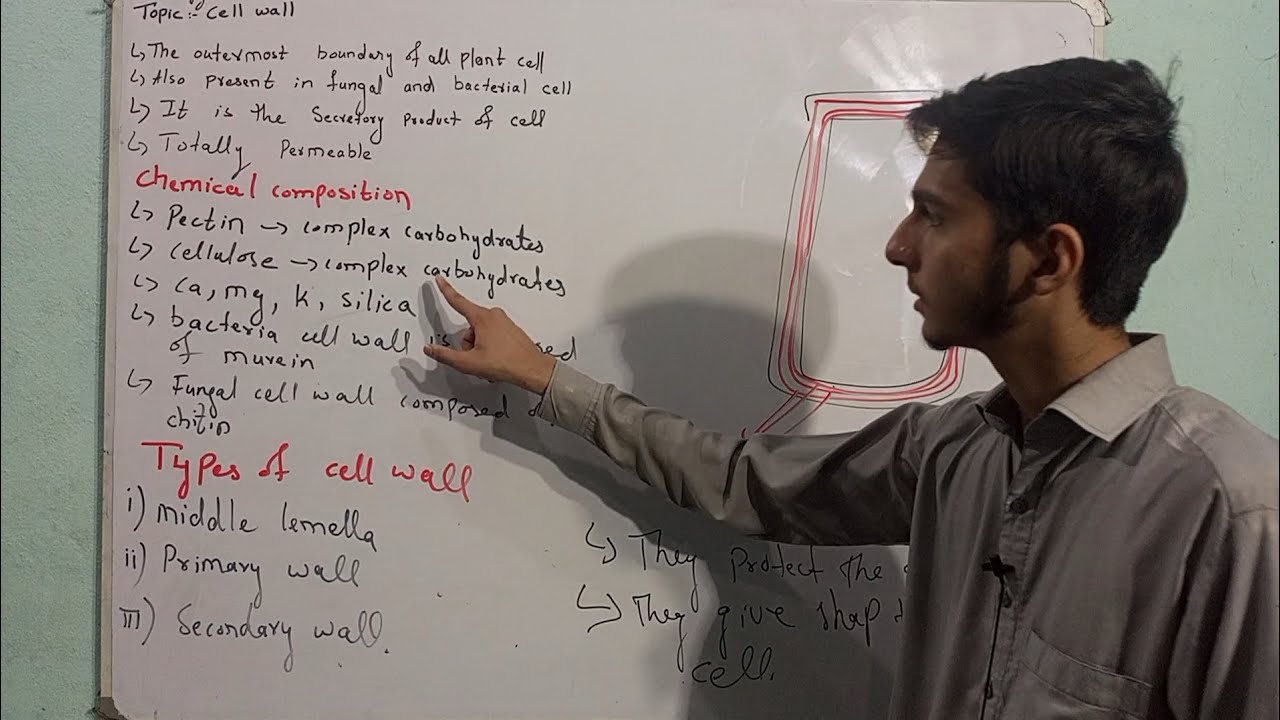 Topic:- Cell wall
↳ The outermost boundary of all plant cell
↳ Also present in fungal and bacterial cell
↳ It is the Secretory product of cell
↳ Totally Permeable
Chemical composition
↳ Pectin → complex carbohydrates
↳ cellulose → complex carbohydrates
↳ Ca, mg, K, silica
↳ bacteria cell wall is
of murein
↳ Fungal cell wall composed
chitin
Types of cell wall
i) Middle lemella
ii) Primary wall
iii) Secondary wall.
↳ They protect the
↳ They give shap
cell.